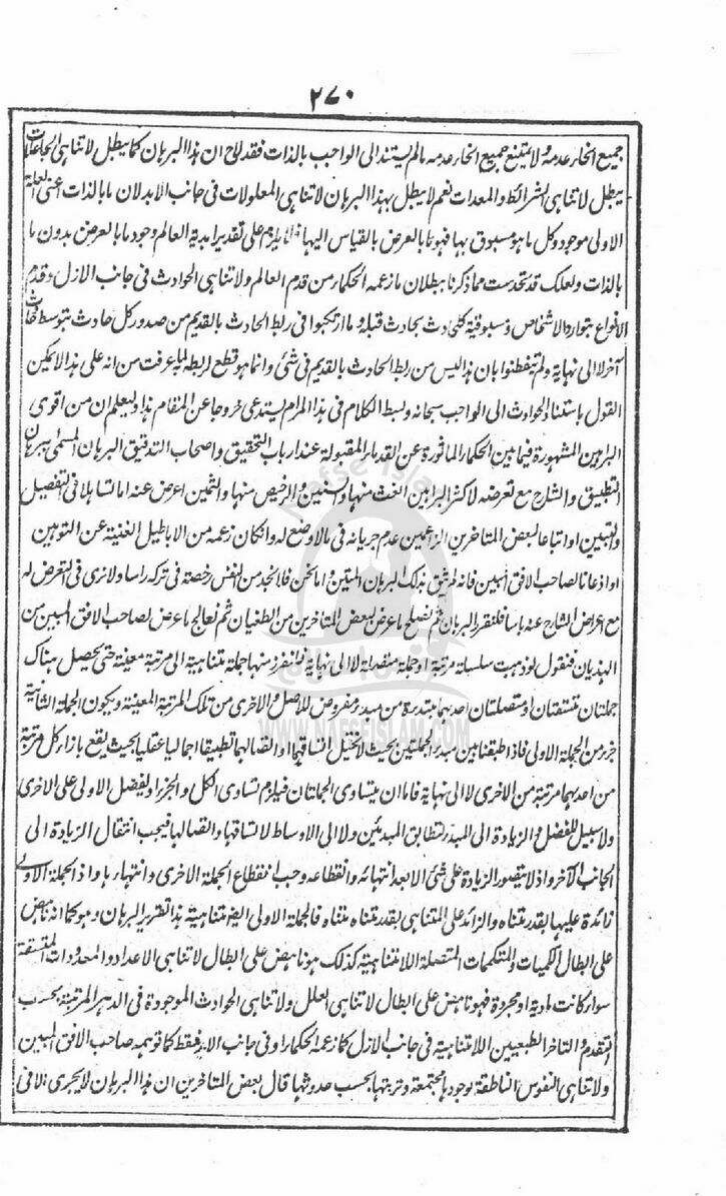 ٢٧٠
جميع انحاء عدمه ولا يمتنع جميع انحاء عدمه مالم يستند الى الواجب بالذات فقد لاح ان هذا البرهان كما يبطل لا تناهى الجاعلات
يبطل لا تناهى الشرائط والمعدات نعم لا يبطل بهذا البرهان لا تناهى المعلولات فى جانب الابد لان ما بالذات اعنى العلة
الاولى موجود وكل ما هو مسبوق بها فهو ما بالعرض بالقياس اليها فلا يلزم على تقدير ابدية العالم وجود ما بالعرض بدون ما
بالذات ولعلك قد تحدست مما ذكرنا ببطلان ما زعمه الحكماء من قدم العالم ولا تناهى الحوادث فى جانب الازل وقدم
الانواع بتوارد الاشخاص ومسبوقية كل حادث بحادث قبله وما ارتكبوا فى ربط الحادث بالقديم من صدور كل حادث بتوسط حادث
آخر لا الى نهاية ولم يتفطنوا بان هذا ليس من ربط الحادث بالقديم فى شئ وانما هو قطع لربطه لما عرفت من انه على هذا لا يمكن
القول باستناد الحوادث الى الواجب سبحانه وبسط الكلام فى هذا المرام يستدعى خروجا عن المقام هذا وليعلم ان من اقوى
البراهين المشهورة فيما بين الحكماء الماثورة عن القدماء المقبولة عند ارباب التحقيق واصحاب التدقيق البرهان المسمى ببرهان
التطبيق والشارح مع تعرضه لاكثر البراهين الغث منها والسمين والرخيص منها والثمين اعرض عنه اما تساهلا فى التفصيل
والتبيين او اتباعا لبعض المتاخرين الزاعمين عدم جريانه فى ما لا وضع له وان كان زعمه من الاباطيل الغنية عن التوهين
او اذعانا لصاحب الافق المبين فانه لم يثق بذلك البرهان المتين واما نحن فلا نجد من النفس رخصة فى تركه راسا ولا نرى فى التعرض له
مع اعراض الشارح عنه باسا فلنقرر البرهان ثم نصلح ما عرض لبعض المتاخرين من الطغيان ثم نعالج ما عرض لصاحب الافق المبين من
الهذيان فنقول لو ذهبت سلسلة مرتبة او جملة متصلة لا الى نهاية فلنفرز منها جملة متناهية الى مرتبة معينة حتى يحصل هناك
جملتان متسقتان او متصلتان احدهما مبتدءة من مبدء مفروض للاصل والاخرى من تلك المرتبة المعينة ويكون الجملة الثانية
جزء من الجملة الاولى فاذا طبقنا بين مبدء الجملتين بحيث لا يختل اتساقهما او اتصالهما تطبيقا اجماليا عقليا بحيث يقع بازاء كل مرتبة
من احدهما مرتبة من الاخرى لا الى نهاية فاما ان يتساوى الجملتان فيلزم تساوى الكل والجزء او يفضل الاولى على الاخرى
ولا سبيل للفضل والزيادة الى المبدء لتطابق المبدئين ولا الى الاوساط لاتساقها واتصالها فيجب انتقال الزيادة الى
الجانب الآخر واذ لا يتصور الزيادة على شئ الا بعد انتهائه وانقطاعه وجب انقطاع الجملة الاخرى وانتهاءها واذ الجملة الاولى
زائدة عليها بقدر متناه والزائد على المتناهى بقدر متناه متناه فالجملة الاولى ايضا متناهية هذا تقرير البرهان وهو كما انه ناهض
على ابطال الكميات والمتكممات المتصلة اللامتناهية كذلك هو ناهض على ابطال لا تناهى الاعداد والمعدودات المتسقة
سواء كانت مادية او مجردة فهو ناهض على ابطال لا تناهى العلل ولا تناهى الحوادث الموجودة فى الدهر المترتبة بحسب
التقدم والتاخر الطبعيين اللامتناهية فى جانب الازل كما زعمه الحكماء او فى جانب الابد فقط كما توهمه صاحب الافق المبين
ولا تناهى النفوس الناطقة لوجودها مجتمعة وترتبها بحسب حدوثها قال بعض المتاخرين ان هذا البرهان لا يجرى الا فى
Nafse Islam
WWW.NAFSEISLAM.COM